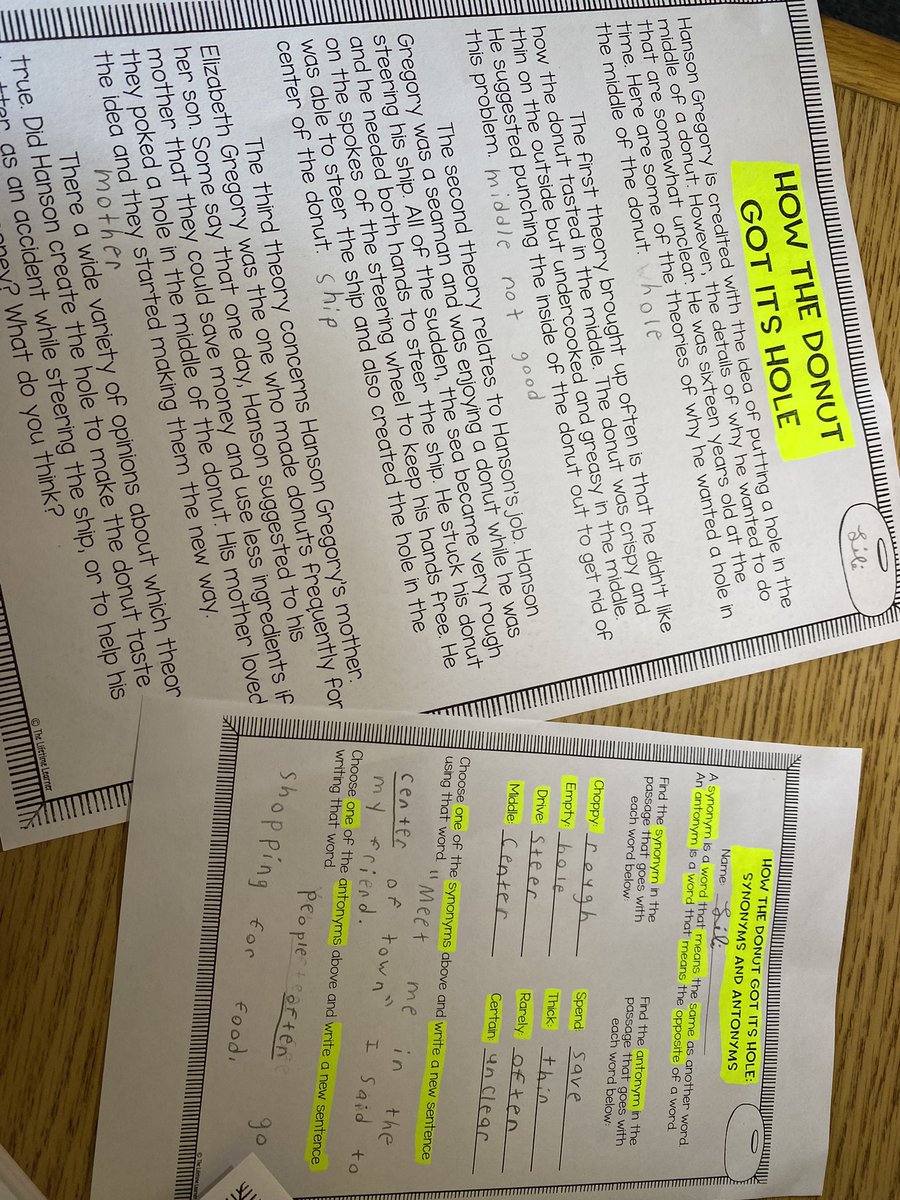 Lili
HOW THE DONUT
GOT ITS HOLE
Hanson Gregory is credited with the idea of putting a hole in the
middle of a donut. However, the details of why he wanted to do
that are somewhat unclear. He was sixteen years old at the
time. Here are some of the theories of why he wanted a hole in
the middle of the donut. whole
The first theory brought up often is that he didn't like
how the donut tasted in the middle. The donut was crispy and
thin on the outside but undercooked and greasy in the middle.
He suggested punching the inside of the donut out to get rid of
this problem. middle not good
The second theory relates to Hanson's job. Hanson
Gregory was a seaman and was enjoying a donut while he was
steering his ship. All of the sudden, the sea became very rough
and he needed both hands to steer the ship. He stuck his donut
on the spokes of the steering wheel to keep his hands free. He
was able to steer the ship and also created the hole in the
center of the donut. ship
The third theory concerns Hanson Gregory's mother.
Elizabeth Gregory was the one who made donuts frequently for
her son. Some say that one day, Hanson suggested to his
mother that they could save money and use less ingredients if
they poked a hole in the middle of the donut. His mother loved
the idea and they started making them the new way.
mother
There a wide variety of opinions about which theor
true. Did Hanson create the hole to make the donut taste
tter as an accident while steering the ship, or to help his
oney? What do you think?
© The Lifetime Learner
HOW THE DONUT GOT ITS HOLE:
SYNONYMS AND ANTONYMS
Name Lili
A synonym is a word that means the same as another word
An antonym is a word that means the opposite of a word.
Find the synonym in the
passage that goes with
each word below:
Choppy: rough
Empty: hole
Drive: steer
Middle: center
Find the antonym in the
passage that goes with
each word below:
Spend: save
Thick: thin
Rarely: often
Certain: unclear
Choose one of the synonyms above and write a new sentence
using that word.
"Meet me in the
center of town" I said to
my friend.
Choose one of the antonyms above and write a new sentence
writing that word.
people often go
shopping for food.
© The Lifetime Learner